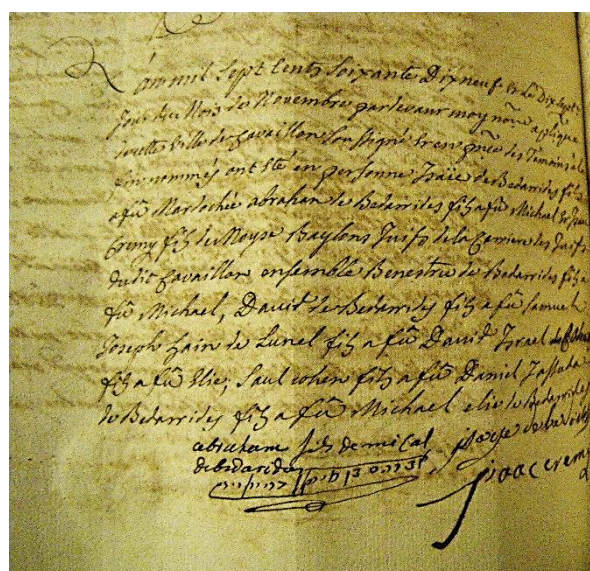 L'an mil sept cents soixante Dixneuf et Le Dix sept
Jour du Mois de Novembre pardevant moy notre aplique
ville de Cavaillon sousigné et en pnce des Temoins a la
fin nommés ont été en personne Isaïe de Bedarrides filz
a fû Mardochée abrahan de Bedarrides filz a fû Michael & Isaac
Cremy filz de Moyse Baylons Juifs de la Carriere des Juifs
dudit Cavaillon ensemble Benestruc de Bedarrides filz a
fû Michael, David de Bedarrides filz a fû samuel
Joseph haïn de Lunel filz a fû David Israel de
filz a fû Elie, Saul cohen filz a fû Daniel Jassuda
de Bedarrides filz a fû Michael elie de Bedarrides
abraham fils de mical
debedaride
isaac cremy